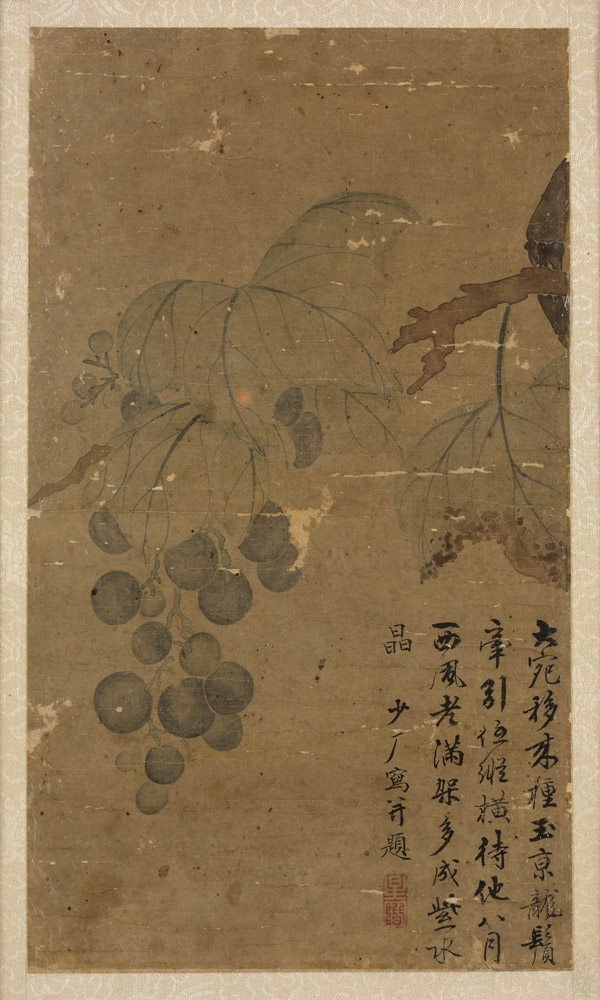 大宛移来種玉京龍鬚
牽引任縱橫待他八月
西風老滿架多成紫水
晶　少厂寫并題